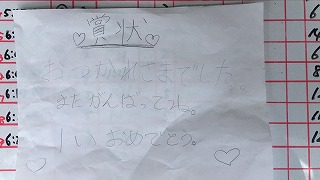 賞状
おつかれさまでした。
またがんばってうね。
1いおめでとう。